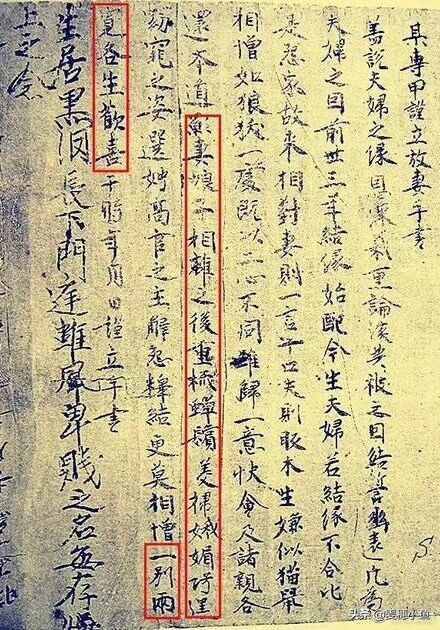 某專甲謹立放妻手書
蓋說夫婦之緣恩深義重論談共被之因結誓幽遠凡為
夫婦之因前世三年結緣始配今生夫婦若結緣不合比
是怨家故來相對妻則一言十口夫則反木生嫌似猫鼠
相憎如狼犺一處既以二心不同難歸一意快會及諸親各
還本道願妻娘子相離之後重梳蟬鬢美掃娥媚巧逞
窈窕之姿選娉高官之主解怨釋結更莫相憎一別兩
寬各生歡喜于時年月日謹立手書
生居黑長下門逢雖風卑賤之名無存
上之
头条